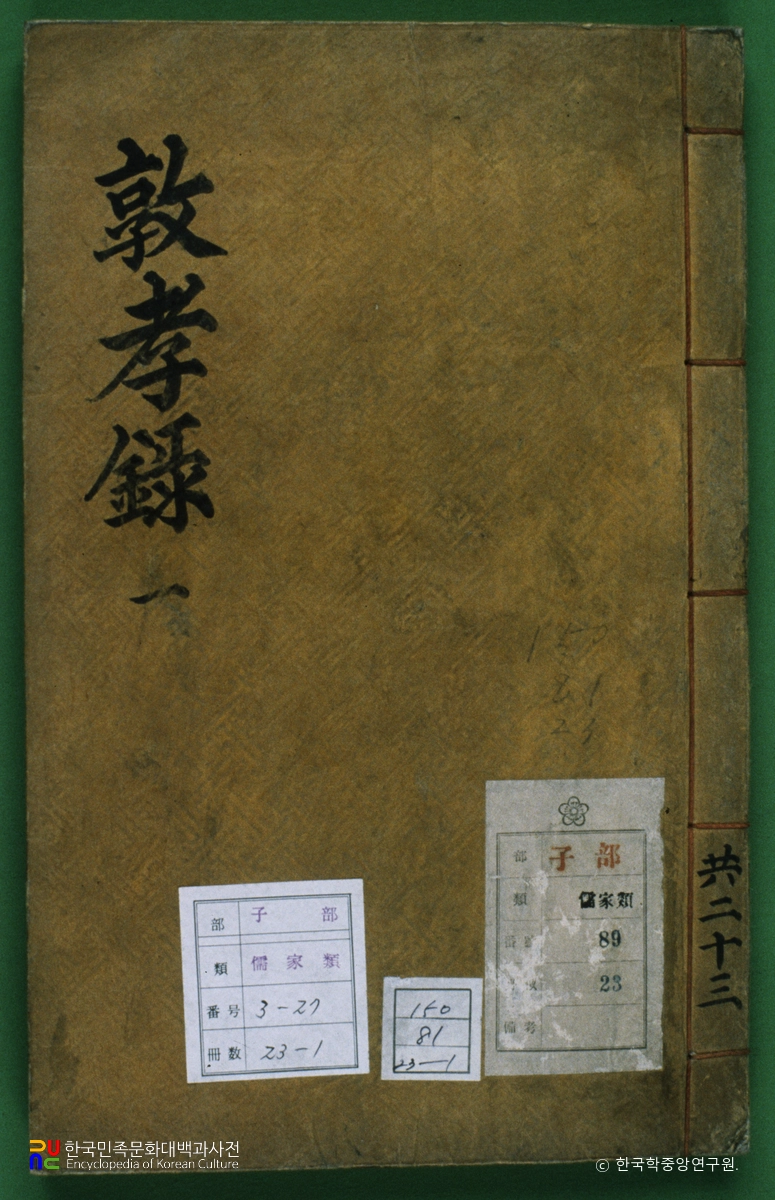 敦孝錄 一
共二十三
150
81
部 子部
類 儒家類
番号 3-27
冊数 23-1
150
81
23-1
部 子部
類 儒家類
89
23
備考
한국민족문화대백과사전
Encyclopedia of Korean Culture
© 한국학중앙연구원.